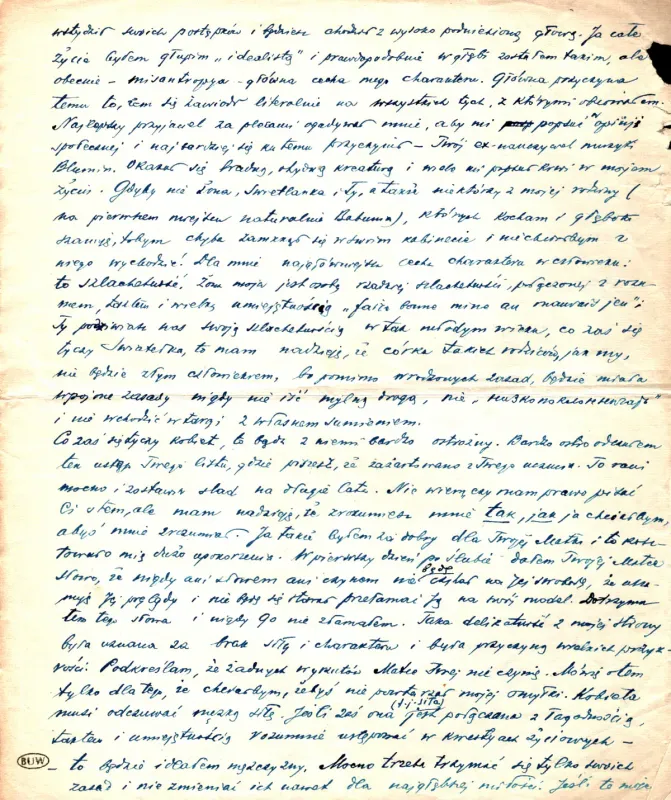 wstydził swoich postępków i będziesz chodził z wysoko podniesioną głową. Ja całe
życie byłem głupim „idealistą” i prawdopodobnie w głębi zostałem takim, ale
obecnie – misantropya – główna cecha mego charakteru. Główna przyczyna
temu to, żem się zawiódł literalnie na wszystkich tych, z którymi obcowałem.
Najlepszy przyjaciel za plecami ogadywał mnie, aby mi popsuć opinję
społecznej i najbardziej się ku temu przyczynił – Twój ex-nauczyciel muzyki
Blumin. Okazał się brudną, ohydną kreaturą i wiele mi popsuł krwi w mojem
życiu. Gdyby nie Żona, Swietlanka i Ty, a także niektórzy z mojej rodziny (
na pierwszem miejscu naturalnie Babunia), których kocham i głęboko
szanuję, tobym chyba zamknął się w swoim kabinecie i nie chciałbym z
niego wychodzić. Dla mnie najgłówniejsza cecha charakteru w człowieku:
to szlachetność. Żona moja jest osobą rzadkiej szlachetności, połączonej z rozu-
mem, taktem i wielką umiejętnością „faire bonne mine au mauvais jeu”;
Ty podziwiasz nas swoją szlachetnością w tak młodym wieku, co zaś się
tyczy Światełka, to mam nadzieję, że córka takich rodziców, jak my,
nie będzie złym człowiekiem, bo pomimo wrodzonych zasad, będzie miała
wpojone zasady nigdy nie iść mylną drogą, nie „низкопоклонничать”
i nie wchodzić w targi z własnem sumieniem.
Co zaś się tyczy kobiet, to bądź z niemi bardzo ostrożny. Bardzo ostro odczułem
ten ustęp Twego listu, gdzie piszesz, że zażartowano z Twego uczucia. To rani
mocno i zostawia ślad na długie lata. Nie wiem, czy mam prawo pisać
Ci o tem, ale mam nadzieję, że zrozumiesz mnie tak, jak ja chciałbym,
abyś mnie zrozumiał. Ja także byłem za dobry dla Twojej Matki i to kosz-
towało mię dużo upokorzenia. W pierwszy dzień po ślubie dałem Twojej Matce
słowo, że nigdy ani słowem ani czynem nie będę czyhał na Jej swobodę, że usza-
nuję Jej poglądy i nie będę się starał przełamać Ją na swój model. Dotrzyma-
łem tego słowa i nigdy go nie złamałem. Taka delikatność z mojej strony
była uznana za brak siły i charakteru i była przyczyną wielkich przykro-
ści. Podkreślam, że żadnych wyrzutów Matce Twej nie czynię. Mówię o tem
tylko dla tego, że chciałbym, żebyś nie powtarzał mojej omyłki. Kobieta
musi odczuwać męską siłę. Jeśli zaś ona (t.j. siła) jest połączona z łagodnością,
taktem i umiejętnością rozumnie ustępować w kwestjach życiowych –
– to będzie ideałem mężczyzny. Mocno trzeba trzymać się tylko swoich
zasad i nie zmieniać ich nawet dla najgłębszej miłości. Jeśli to może
BUW